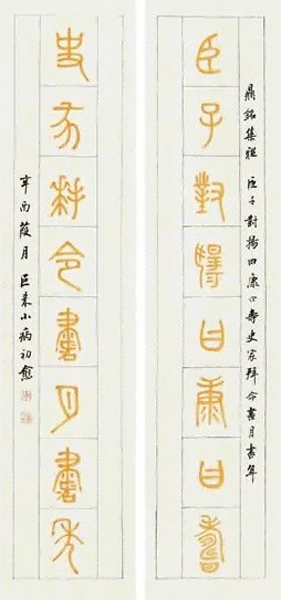 鼎銘集聯 臣子對揚曰康曰壽史家拜命書月書年
臣子對揚曰康曰壽
史家拜命書月書年
辛酉葭月 巨來小病初愈